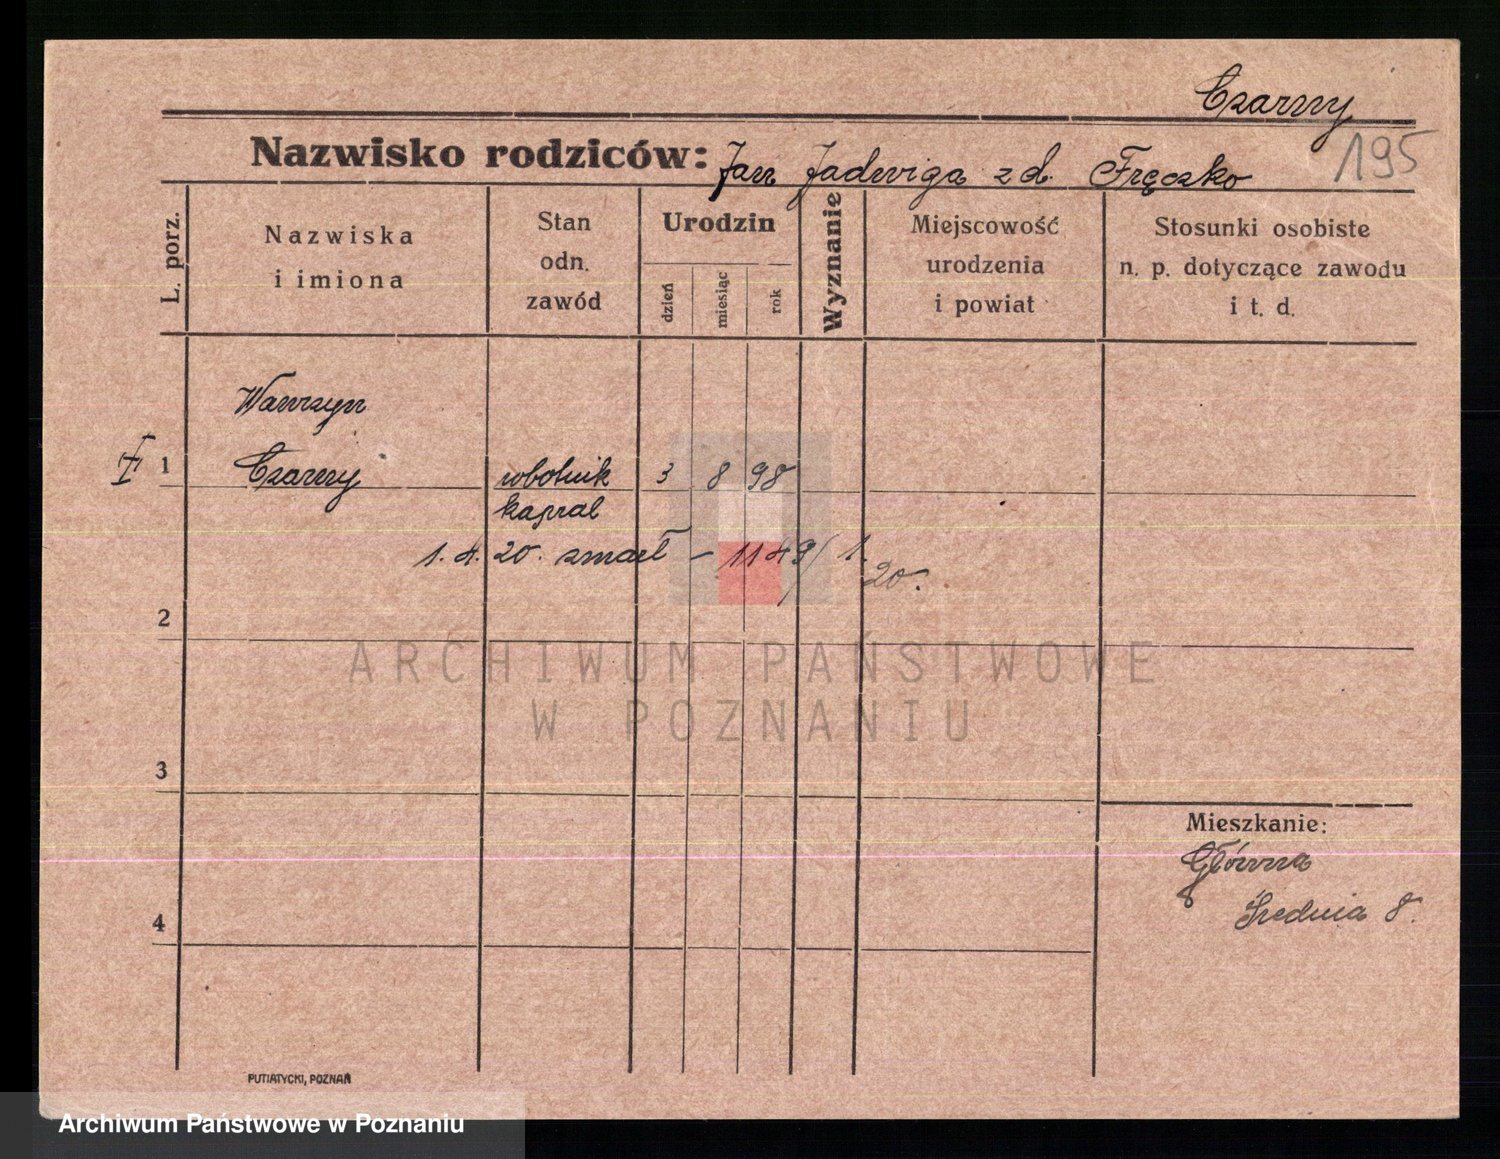 Czarny
195
Nazwisko rodziców: Jan Jadwiga z d. Fręczko
L. porz.
Nazwiska i imiona
Stan odn. zawód
Urodzin
dzień
miesiąc
rok
Wyznanie
Miejscowość urodzenia i powiat
Stosunki osobiste n. p. dotyczące zawodu i t. d.
Wawrzyn
1 Czarny robotnik 3 8 98
kapral
1. 4. 20. zmarł – 1149/1.
20.
2
ARCHIWUM PAŃSTWOWE
W POZNANIU
3
Mieszkanie:
Główna
Średnia 8.
4
PUTIATYCKI, POZNAŃ
Archiwum Państwowe w Poznaniu